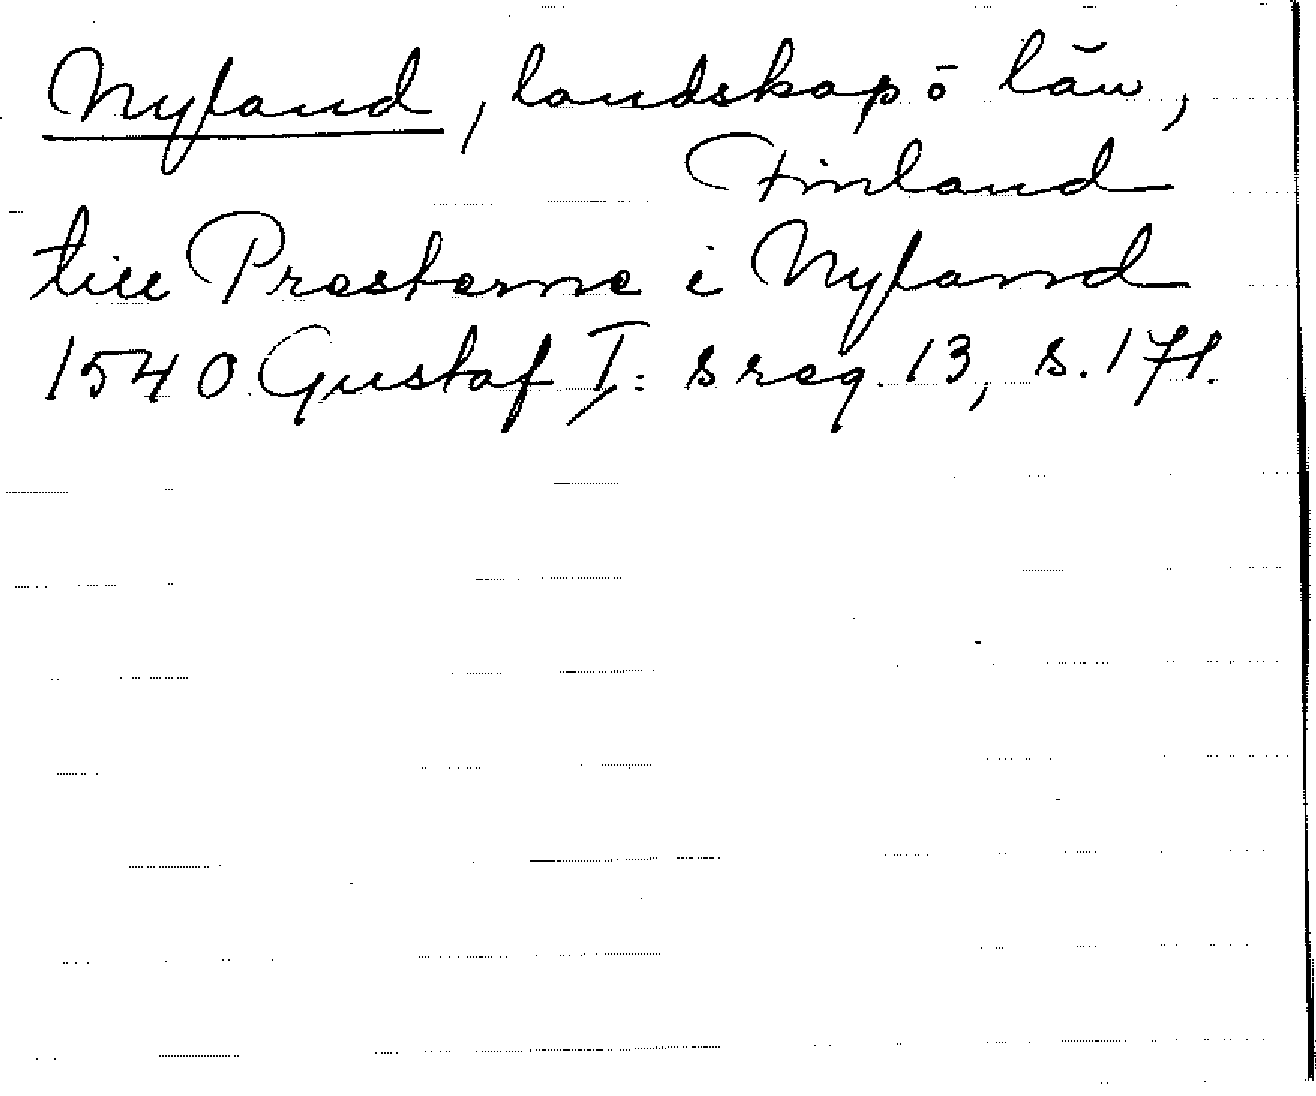 Nyland, landskap o län,
Finland
till Presterne i Nyland
1540 Gustaf I:s reg. 13, s. 171.